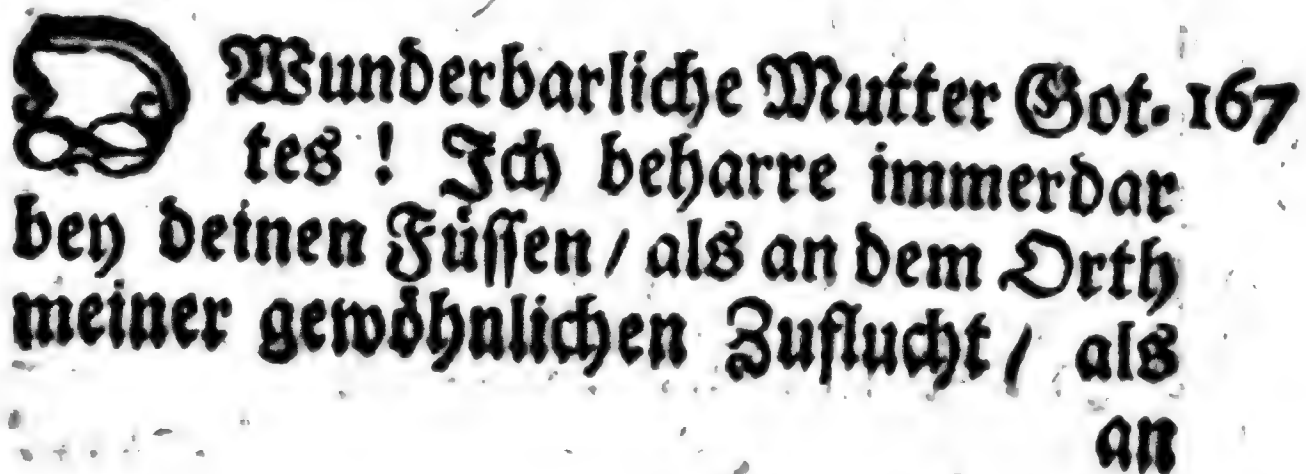 O Wunderbarliche Mutter Got- 167
tes ! Ich beharre immerdar
bey deinen Füssen / als an dem Orth
meiner gewöhnlichen Zuflucht / als
an